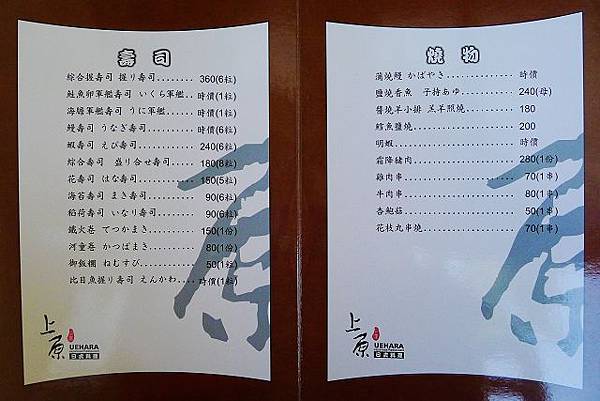 壽司
綜合握壽司 握り寿司......... 360(6粒)
鮭魚卵軍艦壽司 いくら軍艦.. 時價(1粒)
海膽軍艦壽司 うに軍艦....... 時價(1粒)
鰻壽司 うなぎ寿司............ 時價(6粒)
蝦壽司 えび寿司.............. 240(6粒)
綜合壽司 盛り合せ寿司....... 180(8粒)
花壽司 はな寿司.............. 150(5粒)
海苔壽司 まき壽司............ 90(6粒)
稻荷壽司 いなり寿司.......... 90(6粒)
鐵火卷 てつかまき............ 150(1份)
河童卷 かつぱまき............ 80(1份)
御飯糰 ねむすび.............. 50(1粒)
比目魚握り寿司 えんかわ.... 時價(1粒)
上原
UEHARA
日式料理
燒物
蒲燒鰻 かばやき.............. 時價
鹽燒香魚 子持あゆ........... 240(母)
醬燒羊小排 羔羊照燒......... 180
鱈魚鹽燒..................... 200
明蝦......................... 時價
霜降豬肉..................... 280(1份)
雞肉串....................... 70(1串)
牛肉串....................... 80(1串)
杏鮑菇....................... 50(1串)
花枝丸串燒................... 70(1串)
上原
UEHARA
日式料理